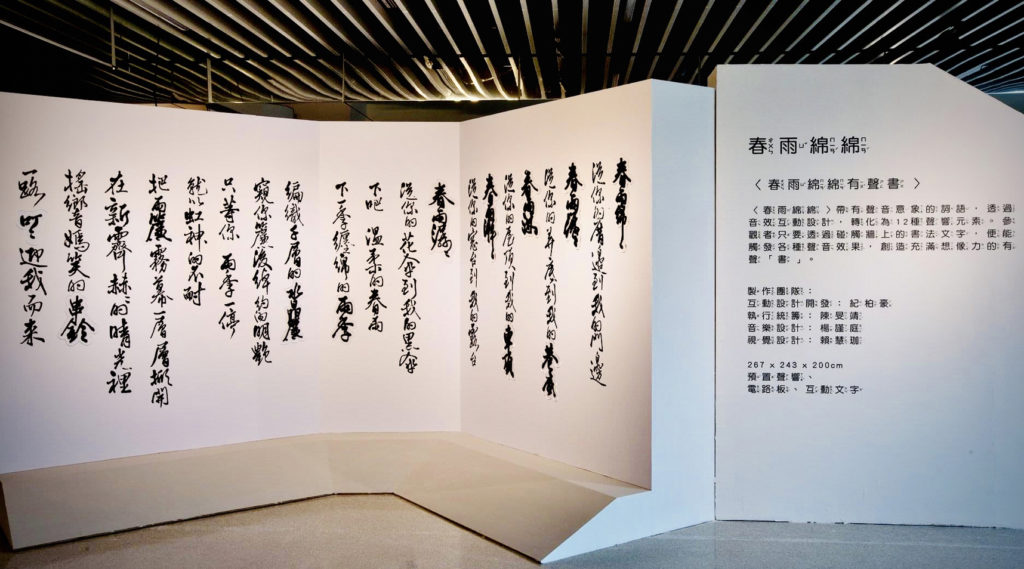 春雨
從你的邊到我的門邊
春雨
從你的井底到我的巷底
春雨
從你的屋頂到我的車頂
春雨
從你的到我的露台
春雨
從你的花傘到我的黑傘
下吧 溫柔的春雨
下一季纏綿的雨季
編織千層的水晶簾
窺你簾後綽約的明艷
只等你 雨季一停
就以虹神的不耐
把雨簾霧幕一層層掀開
在新霽赫赫的晴光裡
搖響嫣笑的串鈴
一路叮叮迎我而來
春雨綿綿
〈春雨綿綿有聲書〉
〈春雨綿綿〉帶有聲音意象的詞語，透過
音效互動設計，轉化為12種聲響元素。參
觀者只要透過碰觸牆上的書法文字，便能
觸發各種聲音效果，創造充滿想像力的有
聲「書」。
製作團隊：
互動設計開發：紀柏豪
執行統籌：陳旻靖
音樂設計：楊謹庭
視覺設計：賴慧珈
267 x 243 x 200cm
預置聲響、
電路板、互動文字